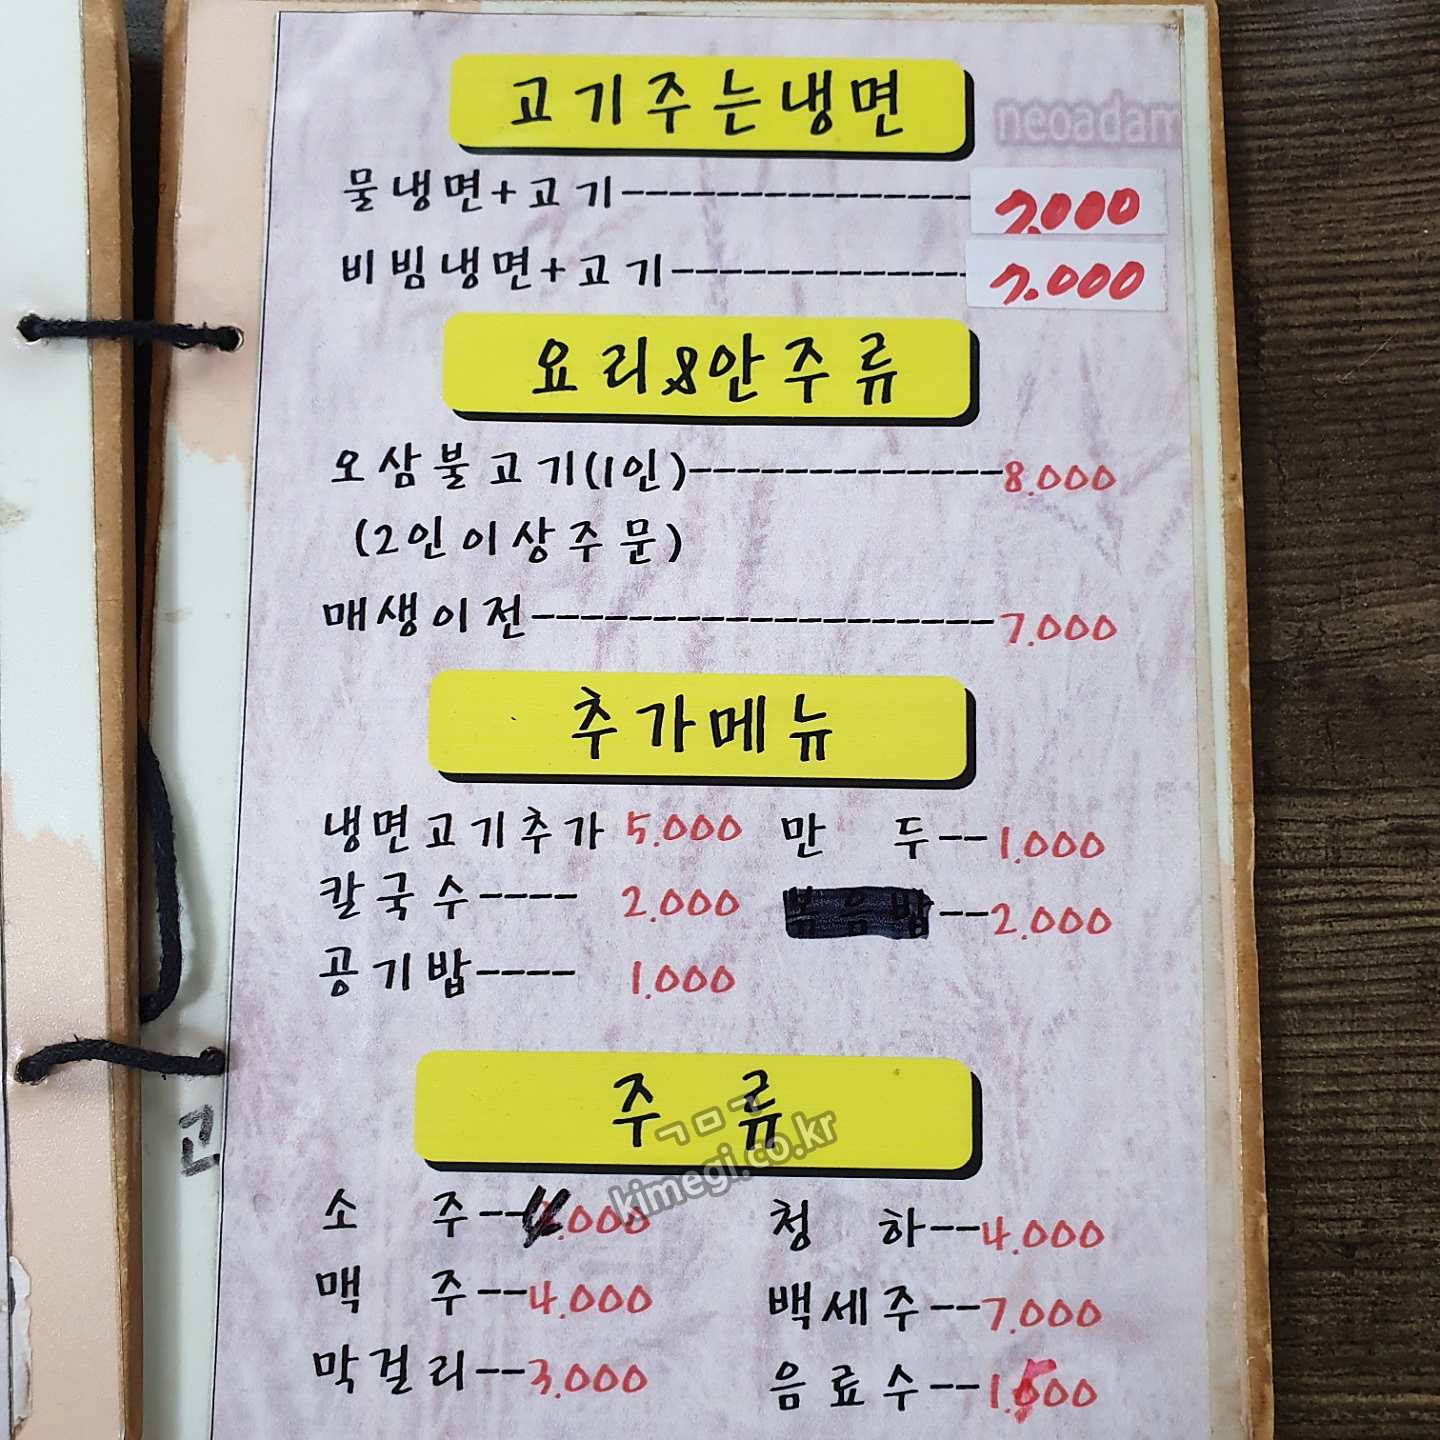 고기주는냉면
neoadam
물냉면+고기---------------- 7.000
비빔냉면+고기------------- 7.000
요리&안주류
오삼불고기(1인)-------------8.000
(2인이상주문)
매생이전-------------------7.000
추가메뉴
냉면고기추가 5.000 만 두--1.000
칼국수---- 2.000 볶음밥--2.000
공기밥---- 1.000
주 류
ㄱㅁㄱ
kimegi.co.kr
고
소 주--4.000 청 하--4.000
맥 주--4.000 백세주--7.000
막걸리--3.000 음료수--1.500